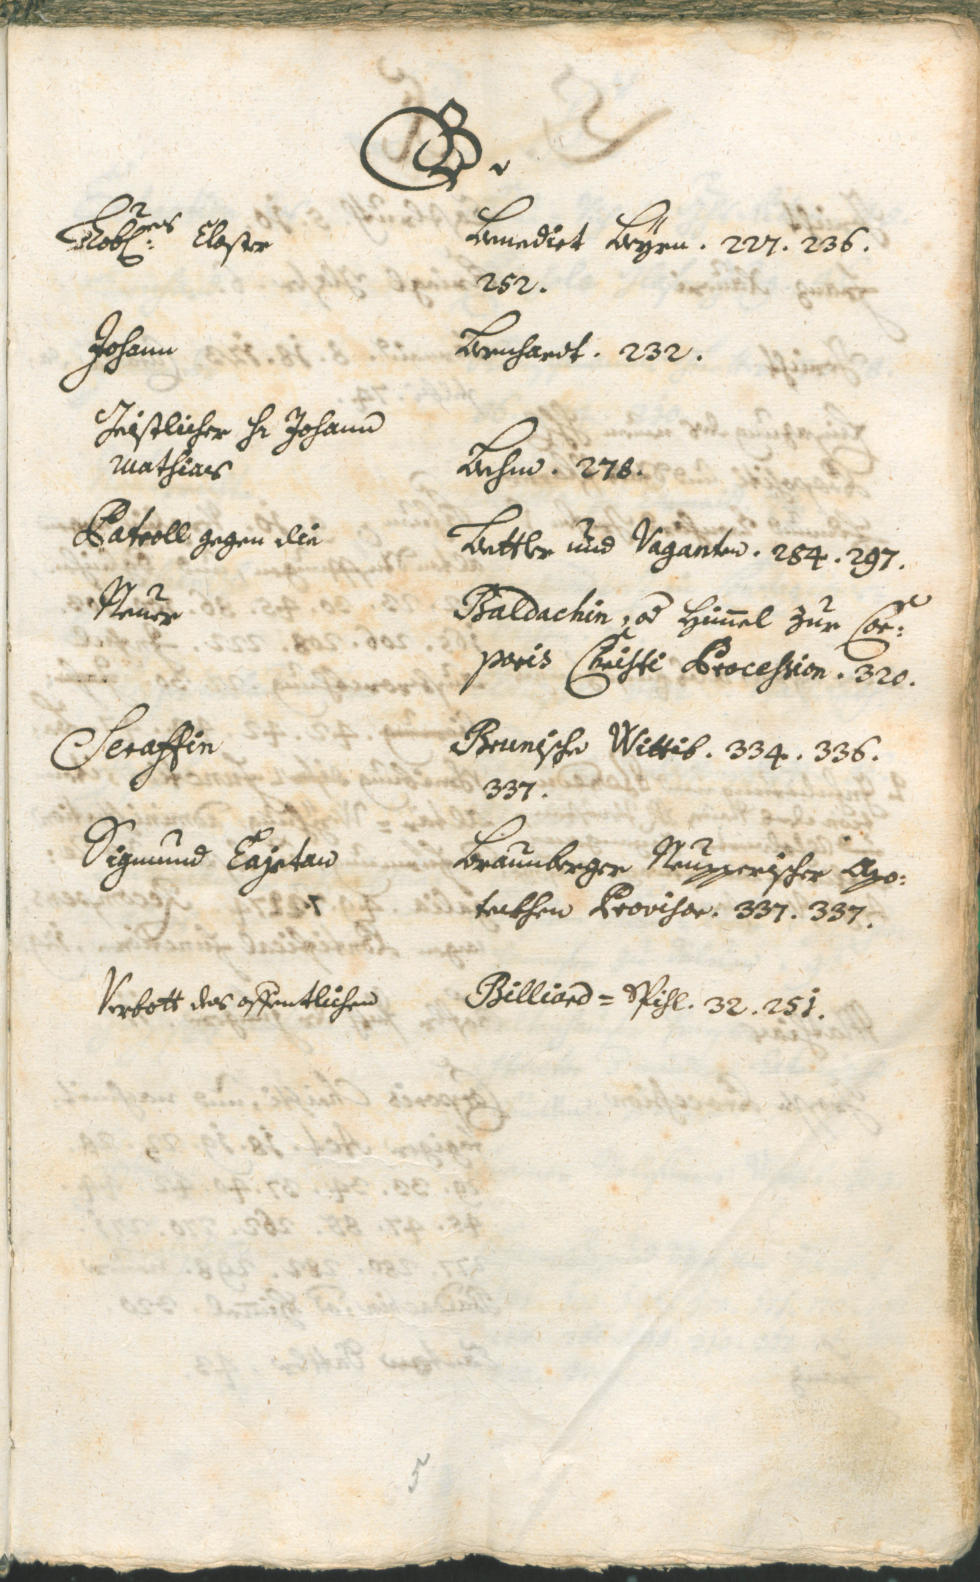 B.
Löbl:es Closter Benedict Beÿrn. 227. 236.
252.
Johann Bernhardt. 232.
Geistlicher Hr Johann
Mathias Behm. 278.
Patroll gegen die Bettler und Vaganten. 284. 297.
Neuer Baldachin, od Himmel zur Cor:
poris Christi Procession. 320.
Seraffin Brunische Wittib. 334. 336.
337.
Sigmund Cajetan Braunberger Neupperischer Apo:
tecken Provisor. 337. 337.
Verbott des offentlichen Billiard=Spihl. 32. 251.
5